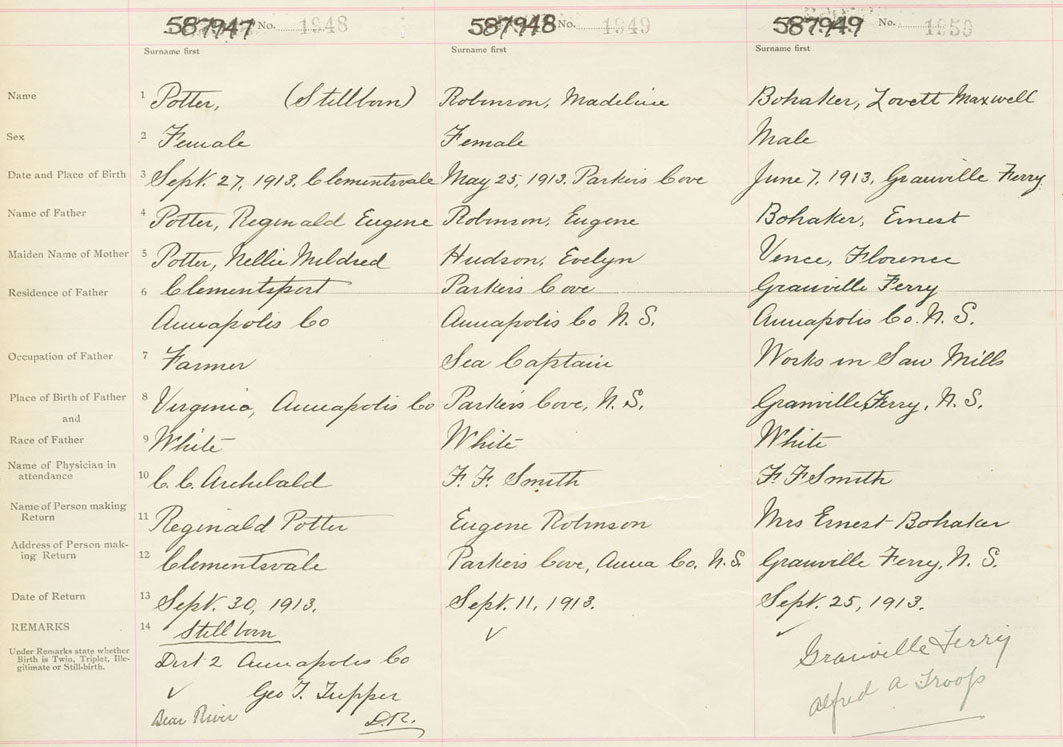 587947 No. 1948 587948 No. 1949 587949 No. 1950
Surname first Surname first Surname first
Name 1 Potter, (Stillborn) Robinson, Madeline Bohaker, Lovett Maxwell
Sex 2 Female Female Male
Date and Place of Birth 3 Sept. 27, 1913, Clementsvale May 25, 1913. Parkers Cove June 7, 1913, Granville Ferry
Name of Father 4 Potter, Reginald Eugene Robinson, Eugene Bohaker, Ernest
Maiden Name of Mother 5 Potter, Nellie Mildred Hudson, Evelyn Vence, Florence
Residence of Father 6 Clementsport Parkers Cove Granville Ferry
Annapolis Co Annapolis Co N. S. Annapolis Co. N. S.
Occupation of Father 7 Farmer Sea Captain Works in Saw Mills
Place of Birth of Father 8 Virginia, Annapolis Co Parkers Cove, N. S. Granville Ferry, N. S.
and
Race of Father 9 White White White
Name of Physician in
attendance 10 C. C. Archibald F. F. Smith F. F Smith
Name of Person making
Return 11 Reginald Potter Eugene Robinson Mrs Ernest Bohaker
Address of Person mak-
ing Return 12 Clementsvale Parkers Cove, Anna Co. N. S. Granville Ferry, N. S.
Date of Return 13 Sept. 30, 1913. Sept. 11, 1913. Sept. 25, 1913.
REMARKS 14 Stillborn ✓ ✓
Under Remarks state whether
Birth is Twin, Triplet, Ille-
gitimate or Still-birth.
Dist 2 Annapolis Co Granville Ferry
✓ Geo T. Tupper Alfred A Troop
Bear River D.R.